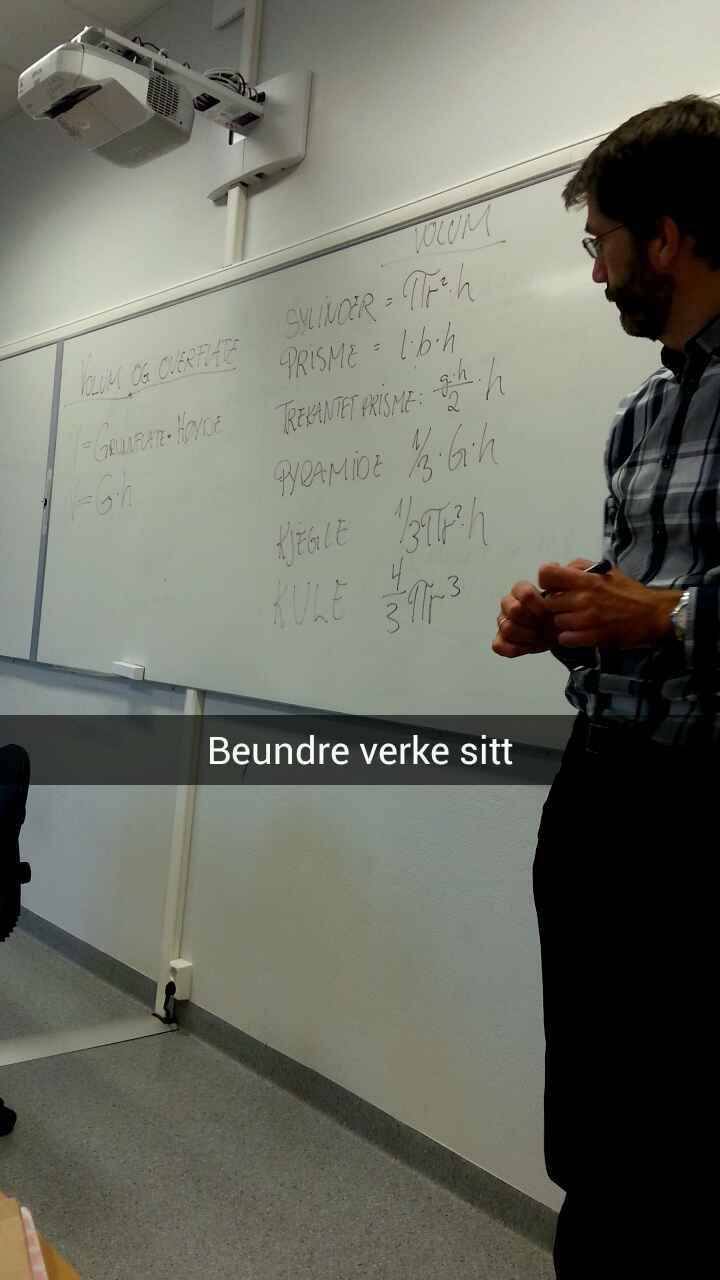 VOLUM OG OVERFLATE
V = GRUNNFLATE · HØYDE
V = G·h
VOLUM
SYLINDER = πr²·h
PRISME = l·b·h
TREKANTET PRISME: g·h/2 · h
PYRAMIDE 1/3·G·h
KJEGLE 1/3πr²·h
KULE 4/3 πr³
Beundre verke sitt